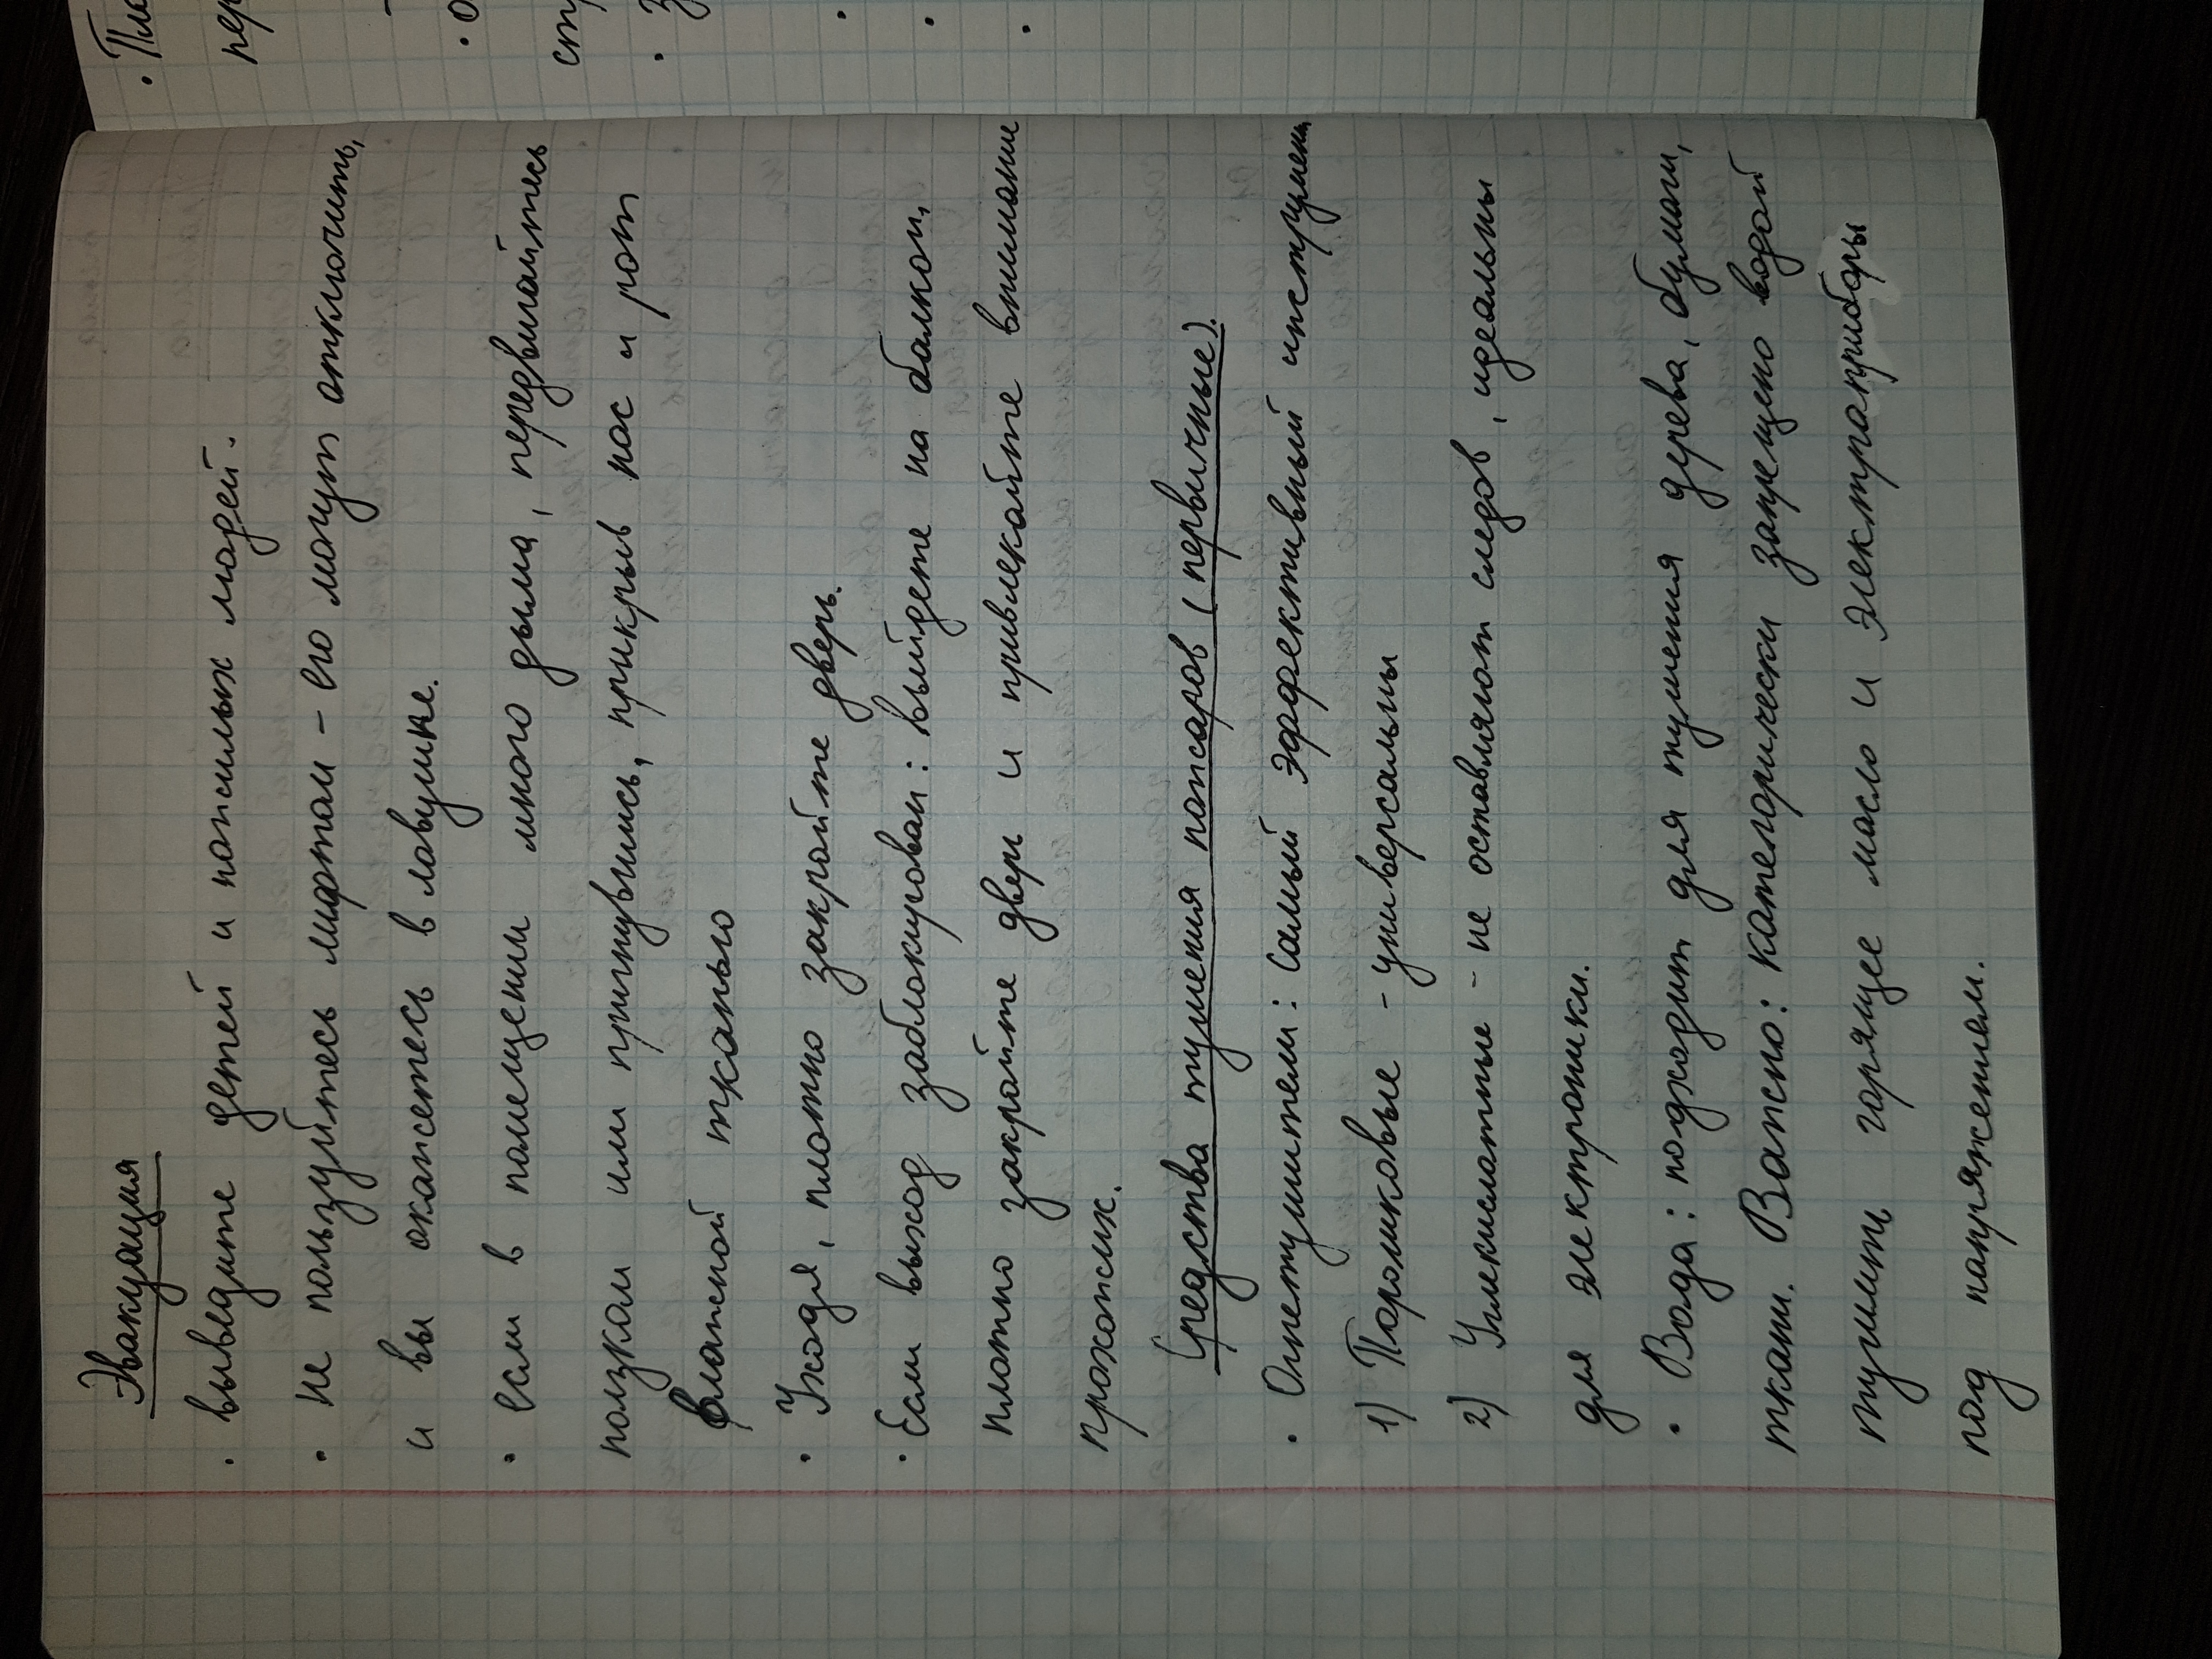 Эвакуация
· выведите детей и пожилых людей.
· Не пользуйтесь лифтом – его могут отключить,
и вы окажетесь в ловушке.
· если в помещении много дыма, передвигайтесь
ползком или пригнувшись, прикрыв нос и рот
влажной тканью
· Уходя, плотно закройте дверь.
· Если выход заблокирован: выйдете на балкон,
плотно закройте дверь и привлекайте внимание
прохожих.
Средства тушения пожаров (первичные).
· Огнетушители: самый эффективный инструмент
1) Порошковые - универсальны
2) Углекислотные - не оставляют следов, идеальны
для электроники.
· Вода: подходит для тушения дерева, бумаги,
ткани. Важно: категорически запрещено водой
тушить горящее масло и электраприборы
под напряжением.
· Пла
пер
· о
ст
· З
·
·
·